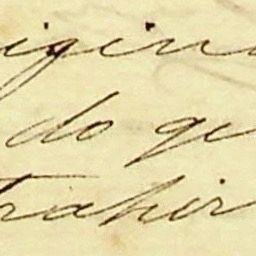 igin
do qu
trahir